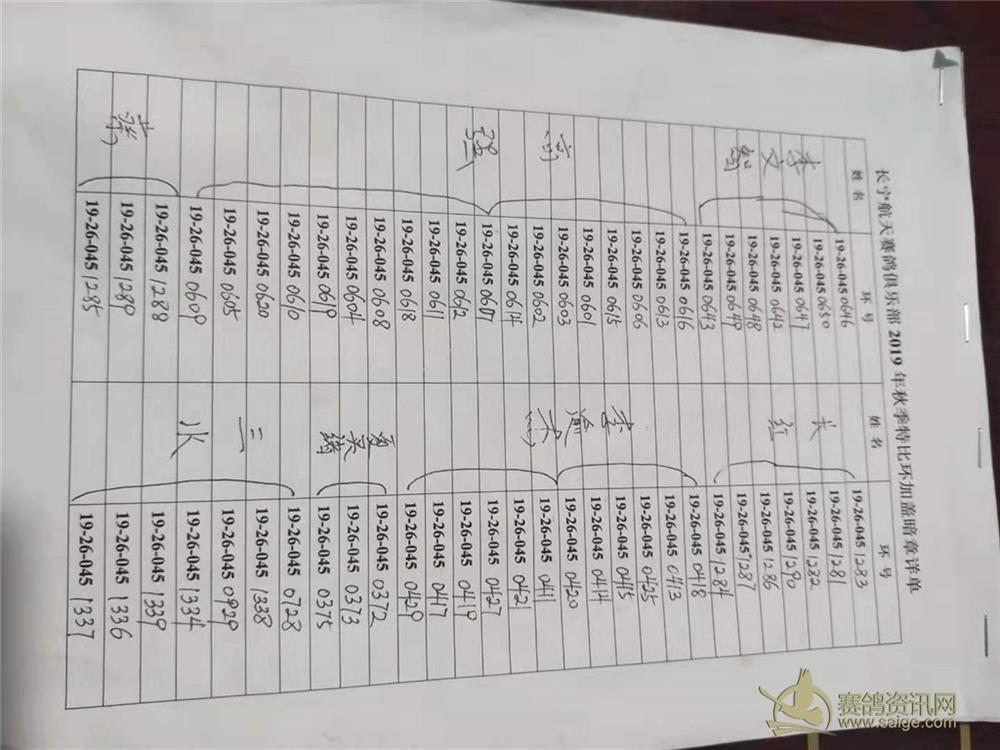 长宁航天赛鸽俱乐部 2019 年秋季特比环加盖暗章详单
姓 名 环 号 姓 名 环 号
19-26-045 0646 19-26-045 1283
李 19-26-045 0650 19-26-045 1281
19-26-045 0647 19-26-045 1282
文 19-26-045 0642 红 19-26-045 1290
19-26-045 0648 19-26-045 1286
19-26-045 0649 19-26-045 1287
19-26-045 0643 19-26-045 1284
19-26-045 0616 19-26-045 0418
19-26-045 0613 19-26-045 0413
19-26-045 0606 19-26-045 0425
19-26-045 0615 李 19-26-045 0415
19-26-045 0601 19-26-045 0414
19-26-045 0603 19-26-045 0420
19-26-045 0602 19-26-045 0411
19-26-045 0614 19-26-045 0421
19-26-045 0607 19-26-045 0427
19-26-045 0612 19-26-045 0419
19-26-045 0611 19-26-045 0417
19-26-045 0618 19-26-045 0429
19-26-045 0608 19-26-045 0372
19-26-045 0604 19-26-045 0373
19-26-045 0619 19-26-045 0375
19-26-045 0610 19-26-045 0728
19-26-045 0620 二 19-26-045 1338
19-26-045 0605 19-26-045 0929
19-26-045 0609 19-26-045 1334
19-26-045 1288 19-26-045 1339
19-26-045 1289 19-26-045 1336
19-26-045 1285 19-26-045 1337
赛鸽资讯网
www.saige.com